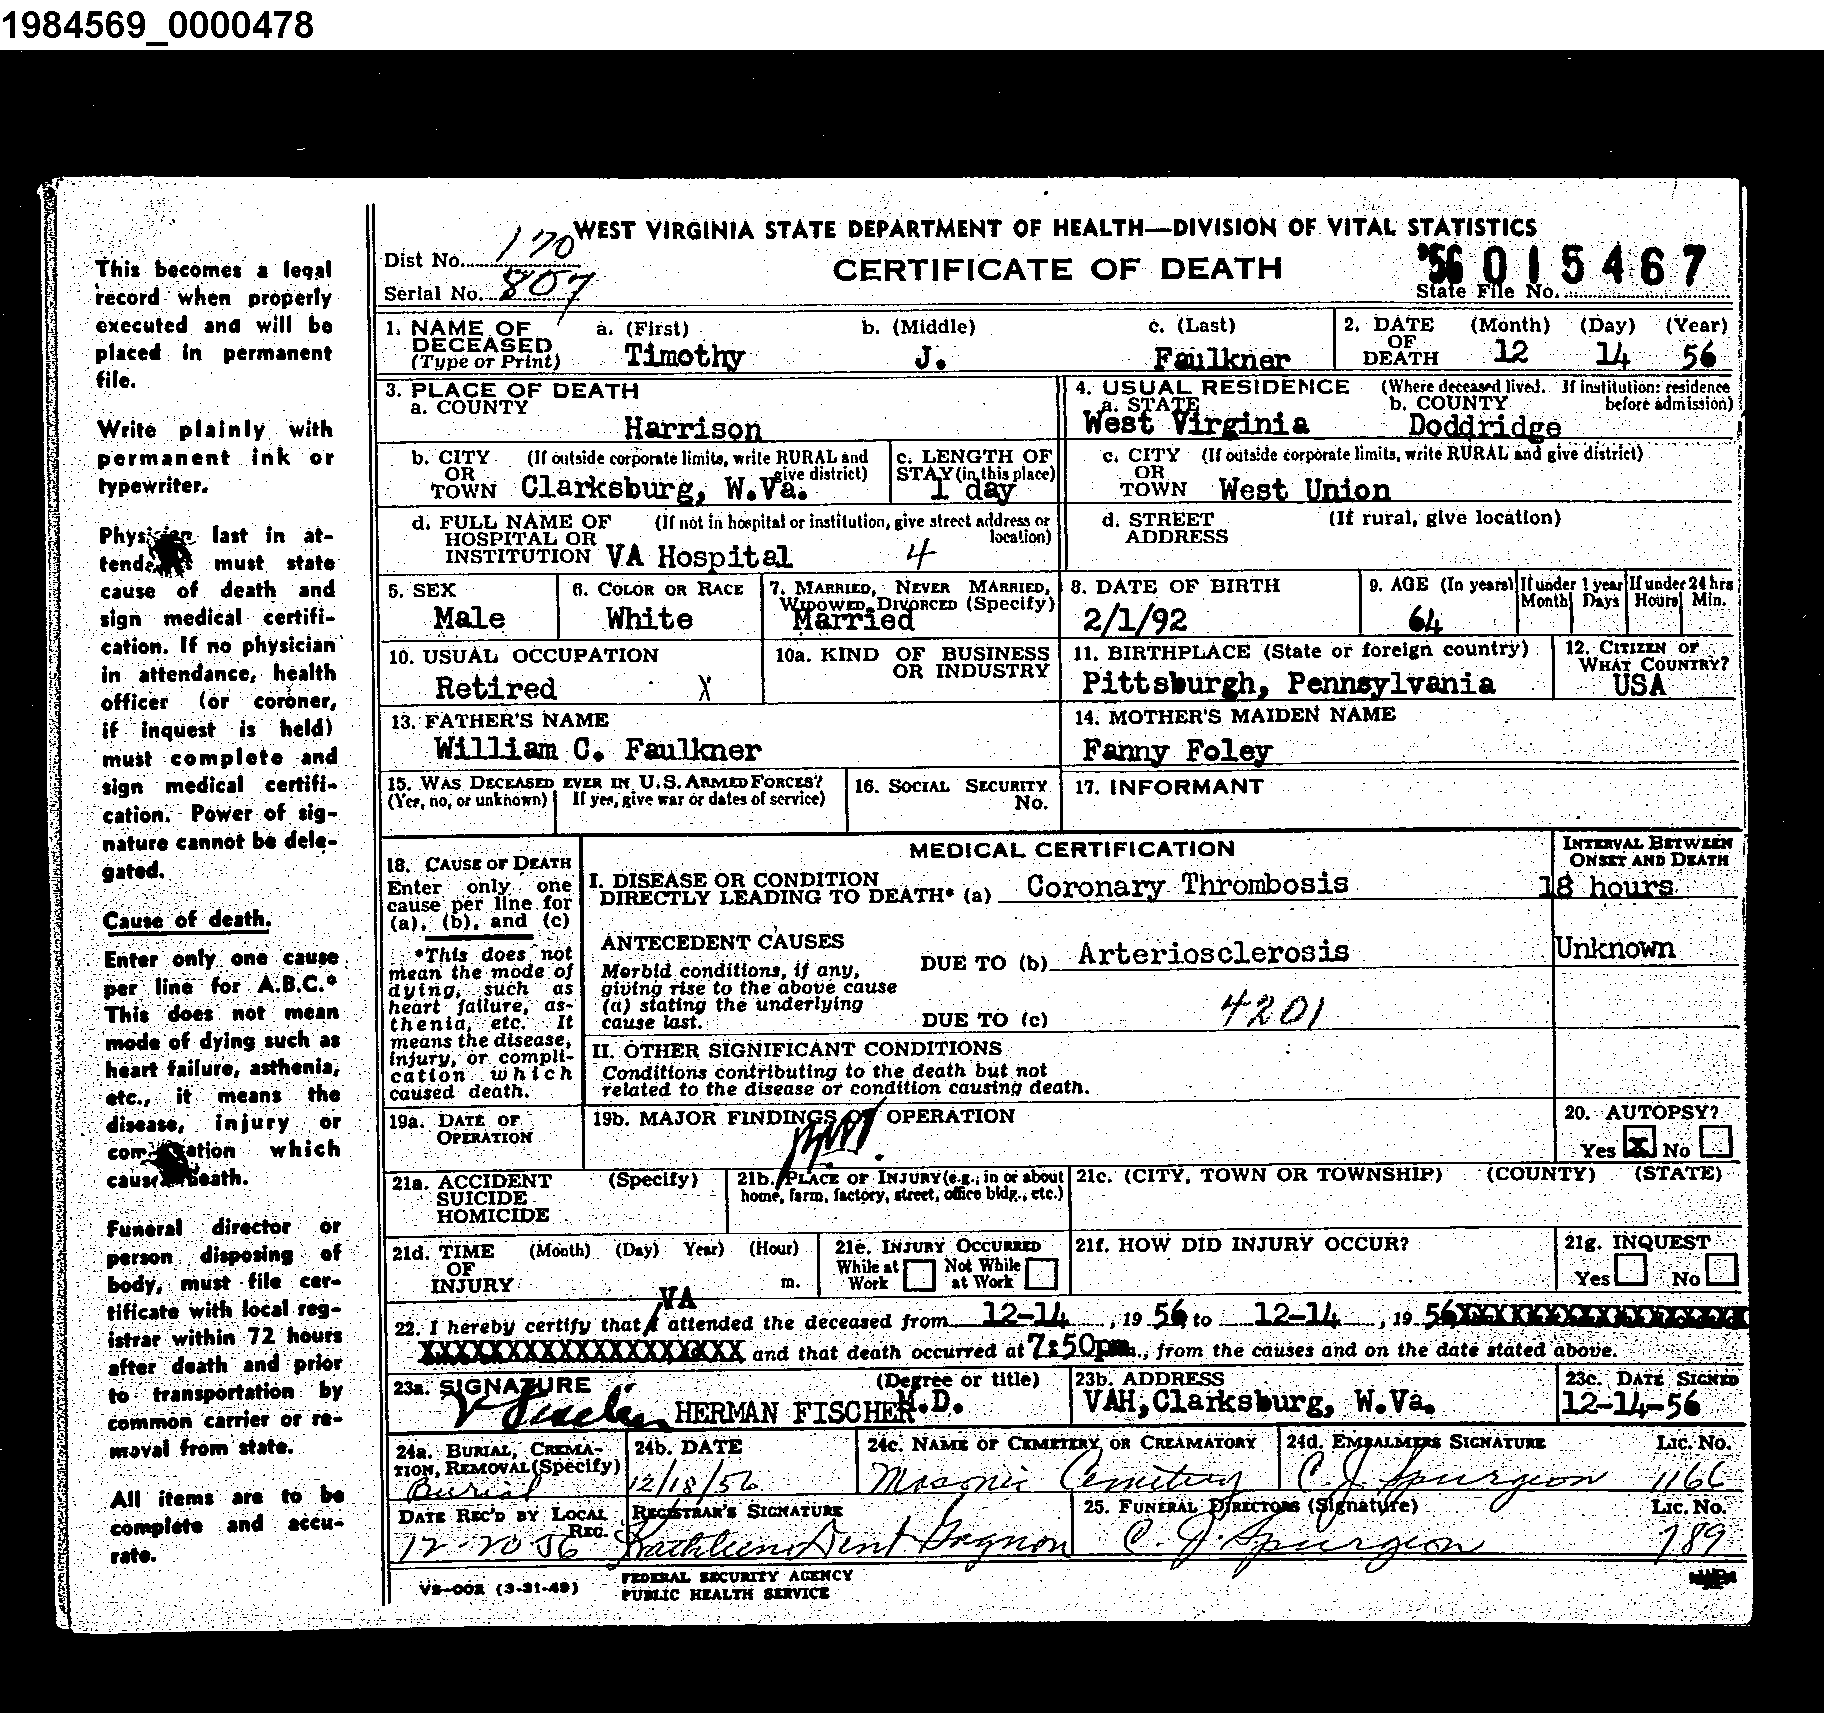 1984569_0000478
This becomes a legal
record when properly
executed and will be
placed in permanent
file.
Write plainly with
permanent ink or
typewriter.
last in at-
must state
cause of death and
sign medical certifi-
cation. If no physician
in attendance, health
officer (or coroner,
if inquest is held)
must complete and
sign medical certifi-
cation. Power of sig-
nature cannot be dele-
gated.
Cause of death.
Enter only one cause
per line for A.B.C.*
This does not mean
mode of dying such as
heart failure, asthenia,
etc., it means the
disease, injury or
which
death.
Funeral director or
person disposing of
body, must file cer-
tificate with local reg-
istrar within 72 hours
after death and prior
to transportation by
common carrier or re-
moval from state.
All items are to be
complete and accu-
rate.
WEST VIRGINIA STATE DEPARTMENT OF HEALTH—DIVISION OF VITAL STATISTICS
Dist No. 170
CERTIFICATE OF DEATH
'56 015467
Serial No. 807
State File No.
1. NAME OF DECEASED (Type or Print) a. (First) b. (Middle) c. (Last)
Timothy J. Faulkner
2. DATE OF DEATH (Month) (Day) (Year)
12 14 56
3. PLACE OF DEATH
a. COUNTY
Harrison
4. USUAL RESIDENCE (Where deceased lived. If institution: residence before admission)
a. STATE b. COUNTY
West Virginia Doddridge
b. CITY OR TOWN (If outside corporate limits, write RURAL and give district)
Clarksburg, W.Va.
c. LENGTH OF STAY (in this place)
1 day
c. CITY OR TOWN (If outside corporate limits, write RURAL and give district)
West Union
d. FULL NAME OF HOSPITAL OR INSTITUTION (If not in hospital or institution, give street address or location)
VA Hospital 4
d. STREET ADDRESS (If rural, give location)
5. SEX
Male
6. COLOR OR RACE
White
7. MARRIED, NEVER MARRIED, WIDOWED, DIVORCED (Specify)
Married
8. DATE OF BIRTH
2/1/92
9. AGE (In years)
64
If under 1 year
Month Days
If under 24 hrs
Hours Min.
10. USUAL OCCUPATION
Retired X
10a. KIND OF BUSINESS OR INDUSTRY
11. BIRTHPLACE (State or foreign country)
Pittsburgh, Pennsylvania
12. CITIZEN OF WHAT COUNTRY?
USA
13. FATHER'S NAME
William C. Faulkner
14. MOTHER'S MAIDEN NAME
Fanny Foley
15. WAS DECEASED EVER IN U.S. ARMED FORCES?
(Yes, no, or unknown) If yes, give war or dates of service)
16. SOCIAL SECURITY No.
17. INFORMANT
18. CAUSE OF DEATH
Enter only one
cause per line for
(a), (b), and (c)
*This does not
mean the mode of
dying, such as
heart failure, as-
thenia, etc. It
means the disease,
injury, or compli-
cation which
caused death.
MEDICAL CERTIFICATION
INTERVAL BETWEEN ONSET AND DEATH
I. DISEASE OR CONDITION
DIRECTLY LEADING TO DEATH* (a) Coronary Thrombosis 18 hours
ANTECEDENT CAUSES
Morbid conditions, if any,
giving rise to the above cause
(a) stating the underlying
cause last.
DUE TO (b) Arteriosclerosis Unknown
DUE TO (c) 4201
II. OTHER SIGNIFICANT CONDITIONS
Conditions contributing to the death but not
related to the disease or condition causing death.
19a. DATE OF OPERATION
19b. MAJOR FINDINGS OF OPERATION
20. AUTOPSY?
Yes X No
21a. ACCIDENT SUICIDE HOMICIDE (Specify)
21b. PLACE OF INJURY (e.g., in or about home, farm, factory, street, office bldg., etc.)
21c. (CITY, TOWN OR TOWNSHIP) (COUNTY) (STATE)
21d. TIME OF INJURY (Month) (Day) Year) (Hour) m.
21e. INJURY OCCURRED
While at Work Not While at Work
21f. HOW DID INJURY OCCUR?
21g. INQUEST
Yes No
VA
22. I hereby certify that attended the deceased from 12-14, 19 56 to 12-14, 19 56 XXXXXXXXXXXXXXXXXXX
XXXXXXXXXXXXXXXXXXX and that death occurred at 7:50pm., from the causes and on the date stated above.
23a. SIGNATURE (Degree or title)
HERMAN FISCHER M.D.
23b. ADDRESS
VAH, Clarksburg, W.Va.
23c. DATE SIGNED
12-14-56
24a. BURIAL, CREMATION, REMOVAL (Specify)
Burial
24b. DATE
12/18/56
24c. NAME OF CEMETERY OR CREAMATORY
Masonic Cemetery
24d. EMBALMERS SIGNATURE Lic. No.
C. J. Spurgeon 1166
DATE REC'D BY LOCAL REG.
12-20 56
REGISTRAR'S SIGNATURE
Kathleen Dent Gagnon
25. FUNERAL DIRECTORS (Signature) Lic. No.
C. J. Spurgeon 789
VS-002 (3-31-49)
FEDERAL SECURITY AGENCY
PUBLIC HEALTH SERVICE